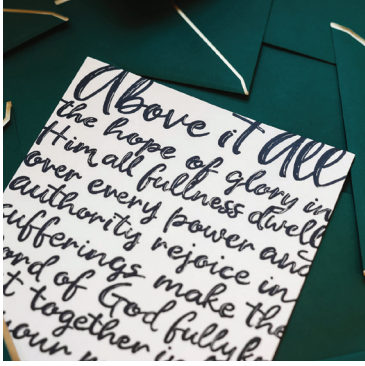 Above it All
the hope of glory in
Him all fullness dwell
over every power and
authority rejoice in
sufferings make the
ord of God fully k
t together in
your